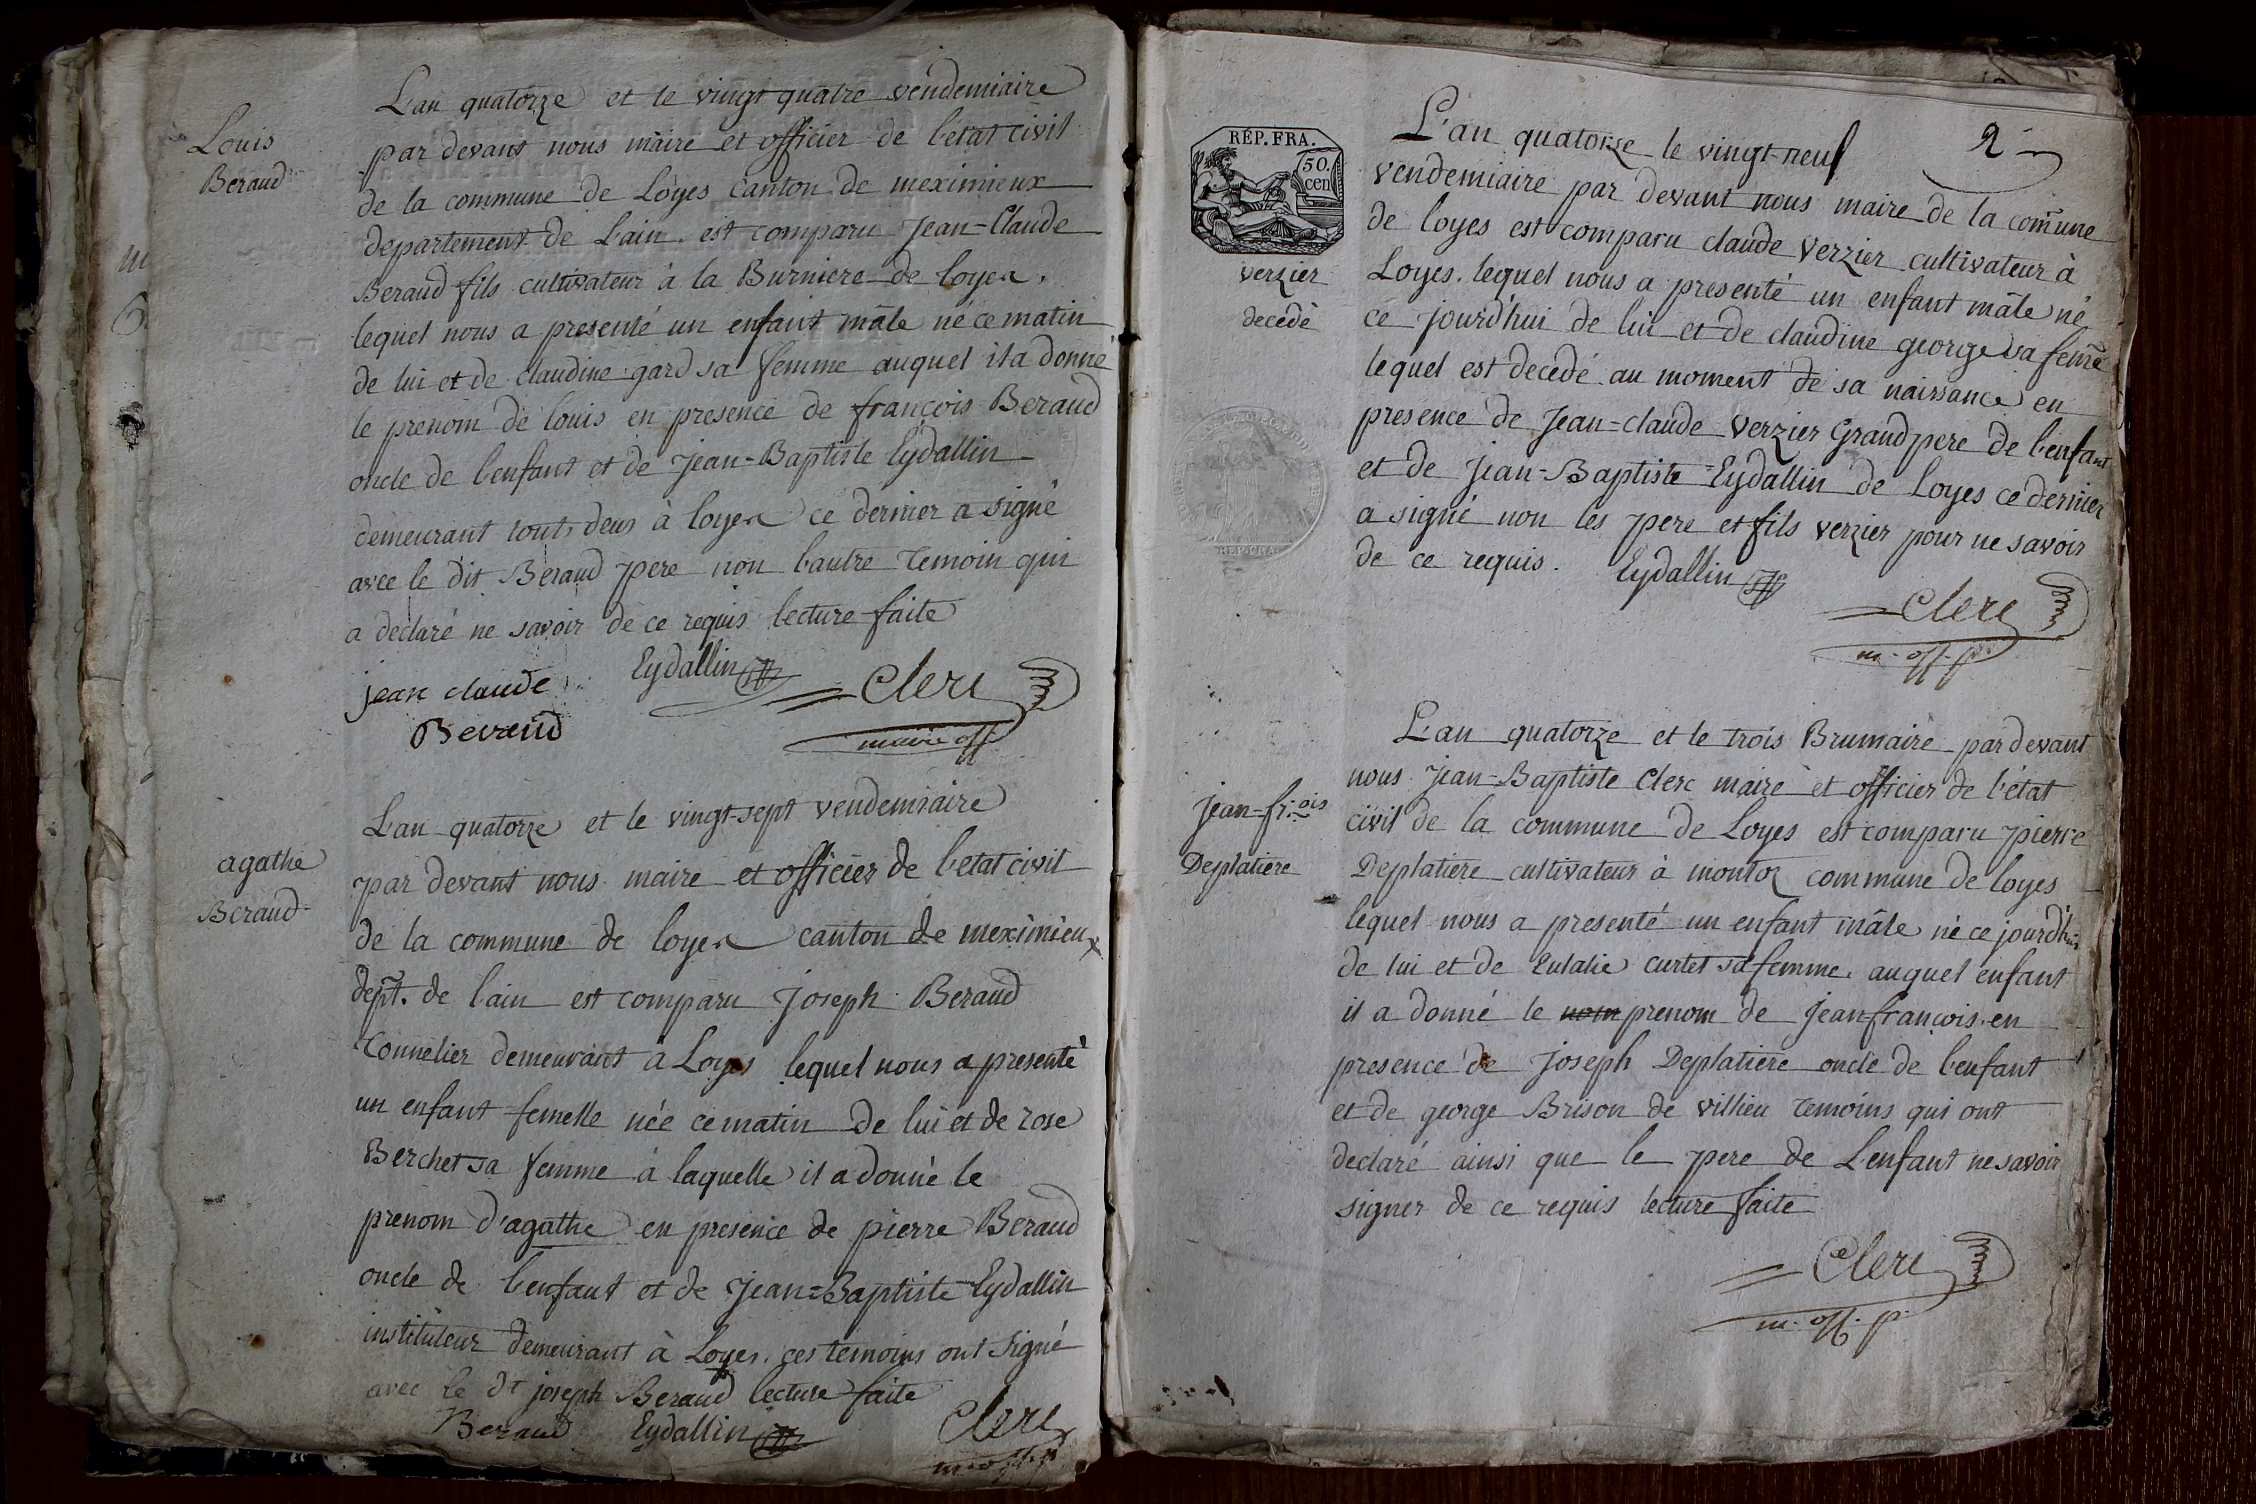 Louis
Beraud
L'an quatorze et le vingt quatre vendemiaire
par devant nous maire et officier de l'etat civil
de la commune de Loyes canton de meximieux
departement de L'ain est comparu Jean=Claude
Beraud fils cultivateur à la Burniere de loyes.
lequel nous a presenté un enfant mâle né ce matin
de lui et de claudine gard sa femme auquel il a donné
le prenom de louis en presence de françois Beraud
oncle de l'enfant et de Jean-Baptiste Eydallin
demeurant tout deux à loyes ce dernier a signé
avec le dit Beraud pere non l'autre temoin qui
a declaré ne savoir de ce requis lecture faite
jean claude
Beraud
Eydallin
Clerc
maire off
agathe
Beraud
L'an quatorze et le vingt-sept vendemiaire
par devant nous maire et officier de l'etat civil
de la commune de loyes canton de meximieux
dept. de l'ain est comparu Joseph Beraud
Tonnelier demeurant à Loyes lequel nous a presenté
un enfant femelle née ce matin de lui et de rose
Berchet sa femme à laquelle il a donné le
prenom d'agathe en presence de pierre Beraud
oncle de l'enfant et de Jean=Baptiste Eydallin
instituteur demeurant à Loyes. ces temoins ont signé
avec le dt joseph Beraud lecture faite
Beraud Eydallin Clerc
m. off. p
2
RÉP. FRA.
50.
cen
verzier
decedé
L'an quatorze le vingt-neuf
vendemiaire par devant nous maire de la com̃une
de loyes est comparu claude verzier cultivateur à
Loyes. lequel nous a presenté un enfant mâle né
ce jourd'hui de lui et de claudine george sa fem̃e
lequel est decedé au moment de sa naissance en
presence de Jean=claude verzier Grandpere de l'enfant
et de Jean-Baptiste Eydallin de Loyes ce dernier
a signé non les pere et fils verzier pour ne savoir
de ce requis. Eydallin
Clerc
m. off. p.
REP. FRA.
jean=fr.ois
Deplatiere
L'an quatorze et le trois Brumaire par devant
nous Jean-Baptiste Clerc maire et officier de l'état
civil de la commune de Loyes est comparu pierre
Deplatiere cultivateur à montoz commune de loyes
lequel nous a presenté un enfant mâle né ce jourd'hui
de lui et de Eulalie curtet sa femme. auquel enfant
il a donné le nom prenom de jeanfrançois. en
presence de joseph Deplatiere oncle de l'enfant
et de george Brison de villieu temoins qui ont
declaré ainsi que le pere de L'enfant ne savoir
signer de ce requis lecture faite
Clerc
m. off. p